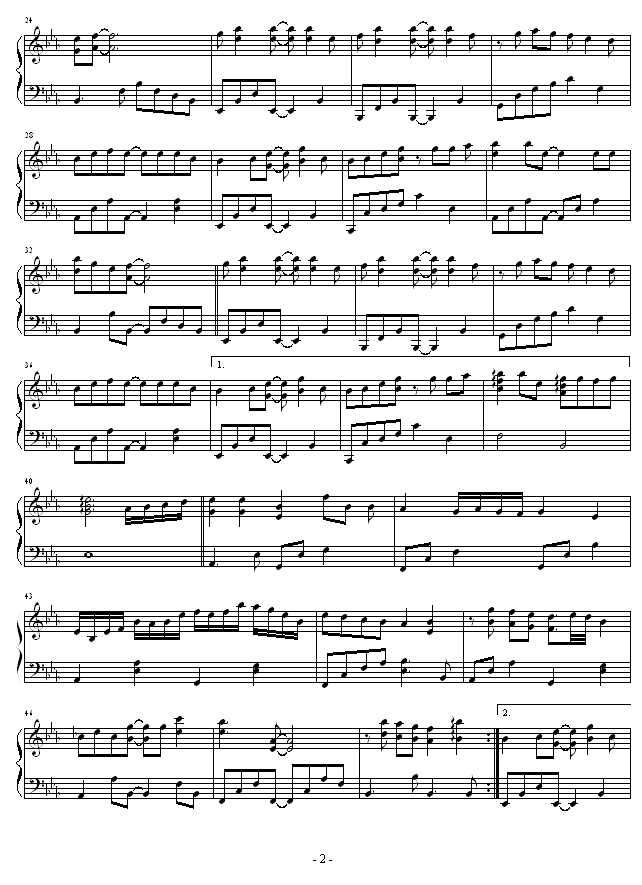 24
28
32
36
1.
40
43
46
2.
- 2 -